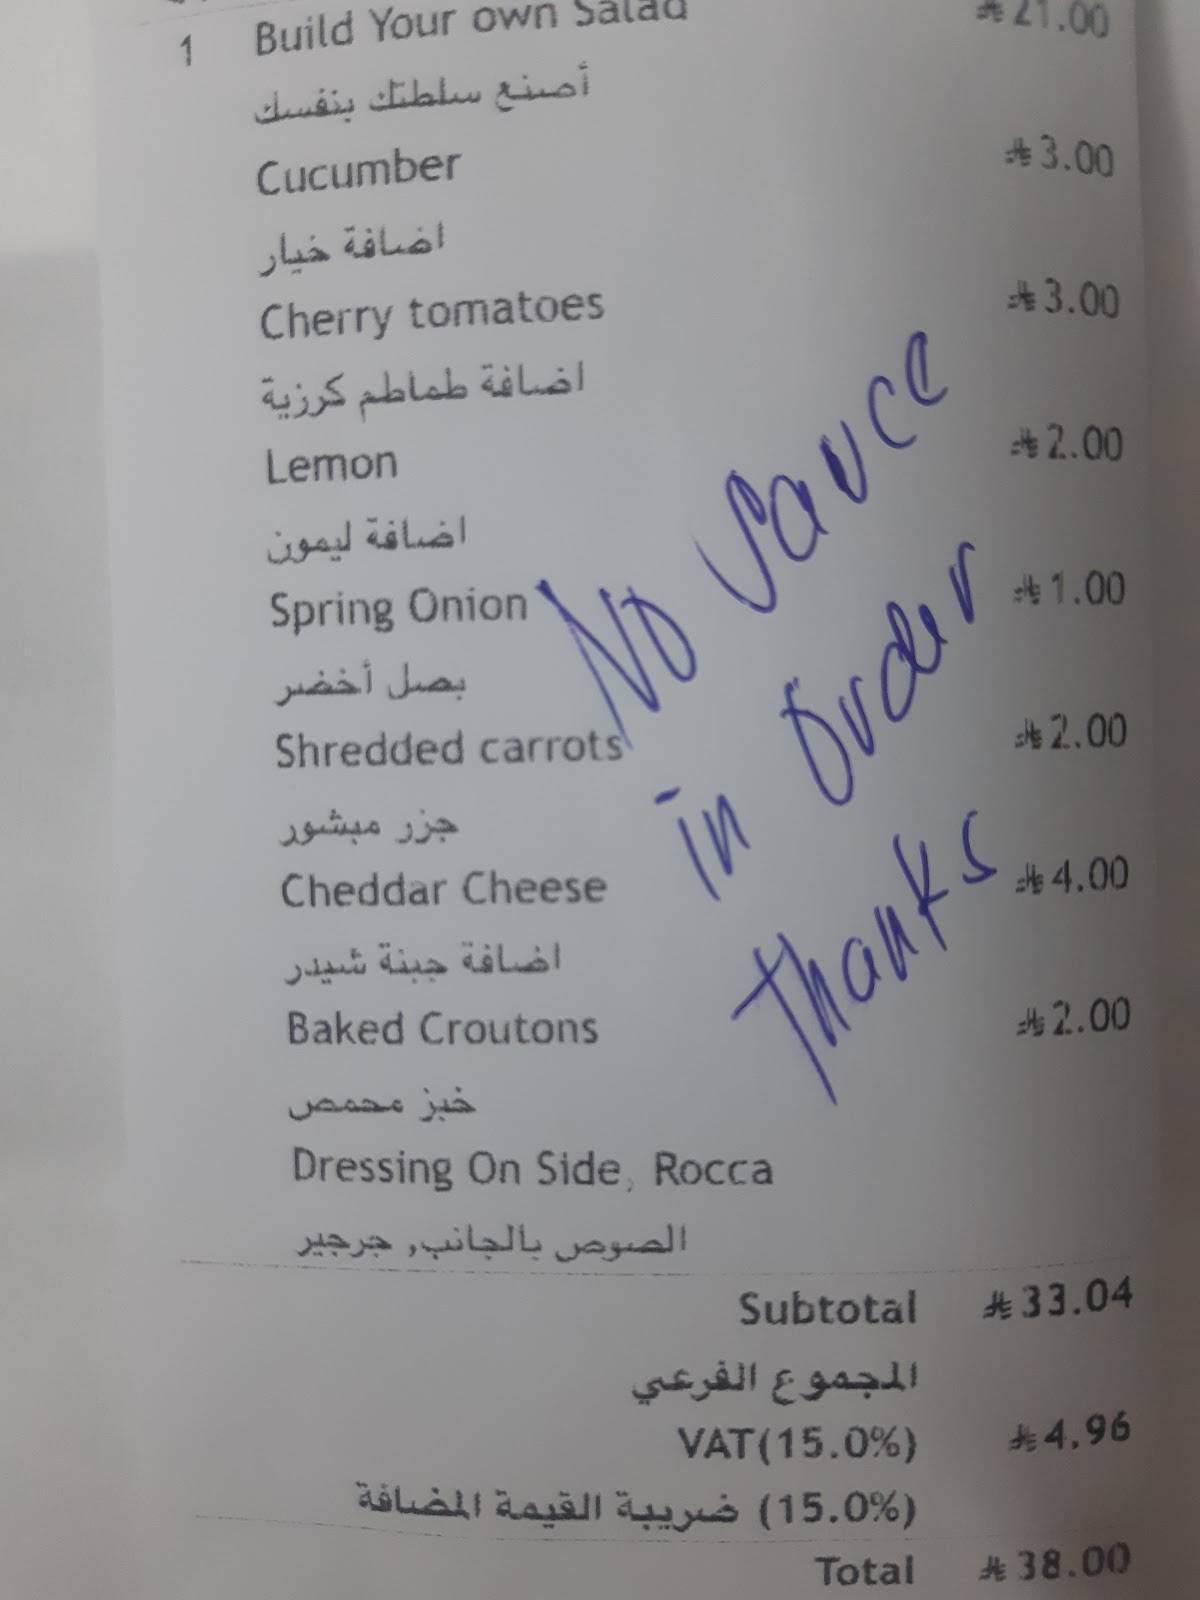 1 Build Your own Salad 21.00
أصنع سلطتك بنفسك
Cucumber 3.00
اضافة خيار
Cherry tomatoes 3.00
اضافة طماطم كرزية
Lemon 2.00
اضافة ليمون
Spring Onion 1.00
بصل أخضر
Shredded carrots 2.00
جزر مبشور
Cheddar Cheese 4.00
اضافة جبنة شيدر
Baked Croutons 2.00
خبز محمص
Dressing On Side, Rocca
الصوص بالجانب, جرجير
No Sauce
in Order
Thanks
Subtotal 33.04
المجموع الفرعي
VAT(15.0%) 4.96
ضريبة القيمة المضافة (15.0%)
Total 38.00